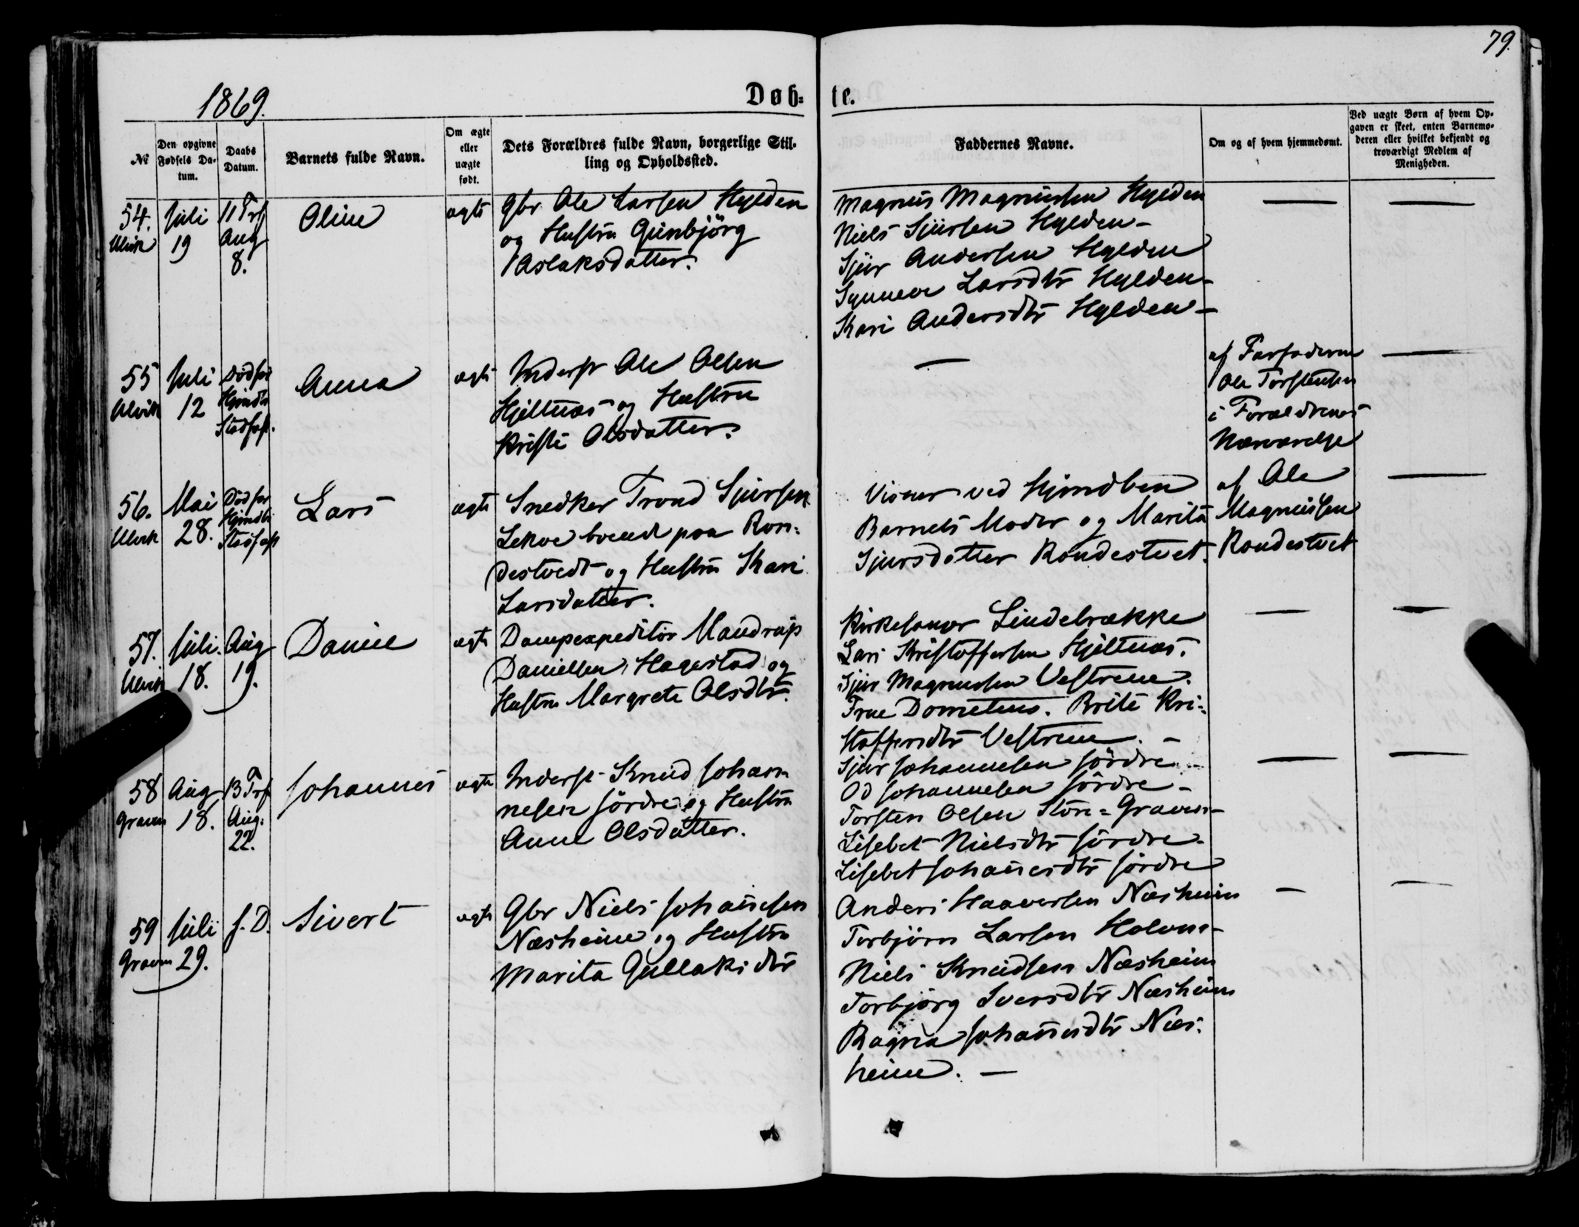 79.
1869.
Døb-
te.
№
Den opgivne Fødsels Datum.
Daabs Datum.
Barnets fulde Navn.
Om ægte eller uægte født.
Dets Forældres fulde Navn, borgerlige Stilling og Opholdssted.
Faddernes Navne.
Om og af hvem hjemmedøbt.
Ved uægte Børn af hvem Opgaven er skeet, enten Barnemoderen eller hvilket bekjendt og troværdigt Medlem af Menigheden.
54.
Ulvik
Juli
19
11 Trf
Aug
8.
Oline
ægte
Gbr Ole Larsen Hylden
og Hustru Gunbjörg
Aslaksdatter.
Magnus Magnussen Hylden
Niels Sjursen Hylden -
Sjur Andersen Hylden
Synneve Larsdtr Hylden -
Kari Andersdtr Hylden -
55
Ulvik
Juli
12
Död før
Hjmdb
Stadfæst.
Anna
ægte
Inderst Ole Olsen
Hjeltnæs og Hustru
Kristi Olsdatter.
af Farfaderen
Ole Torstensen
i Forældrenes
Nærværelse
56.
Ulvik
Mai
28.
Död før
Hjmdb
Stadfæst
Lars
ægte
Snedker Trond Sjursen
Lekve boende paa Ron-
destvedt og Hustru Kari
Larsdatter.
Vidner ved Hjmdben
Barnets Moder og Marita
Sjursdatter Rondestvet.
af Ole
Magnussen
Rondestvet
57.
Ulvik
Juli
18.
Aug
19.
Daniel
ægte
Dampexpeditör Mandrup
Daniellsen Hagestad og
Hustru Margrete Olsdtr.
Kirkesanger Lindebrække
Lars Kristoffersen Hjeltnæs.
Sjur Magnussen Vestrem.
Frue Dometius. Brite Kri-
stoffersdtr Vestrem. -
58
Graven
Aug
18.
13 Trf
Aug.
22.
Johannes
ægte
Inderst Knud Johan-
nesen Jördre og Hustru
Anna Olsdatter.
Sjur Johannesen Jördre -
Od Johannesen Jördre -
Torsten Olsen Stön-Graven -
Lisebet Nielsdtr Jördre -
Lisebet Johannesdtr Jördre
59
Graven
Juli
29.
s. D.
Sivert
ægte
Gbr Niels Johannesen
Næsheim og Hustru
Marita Gullaksdtr
Anders Haaversen Næsheim
Torbjörn Larsen Holven -
Niels Knudsen Næsheim
Torbjörg Iversdtr Næsheim
Ragna Johannesdtr Næs-
heim. -